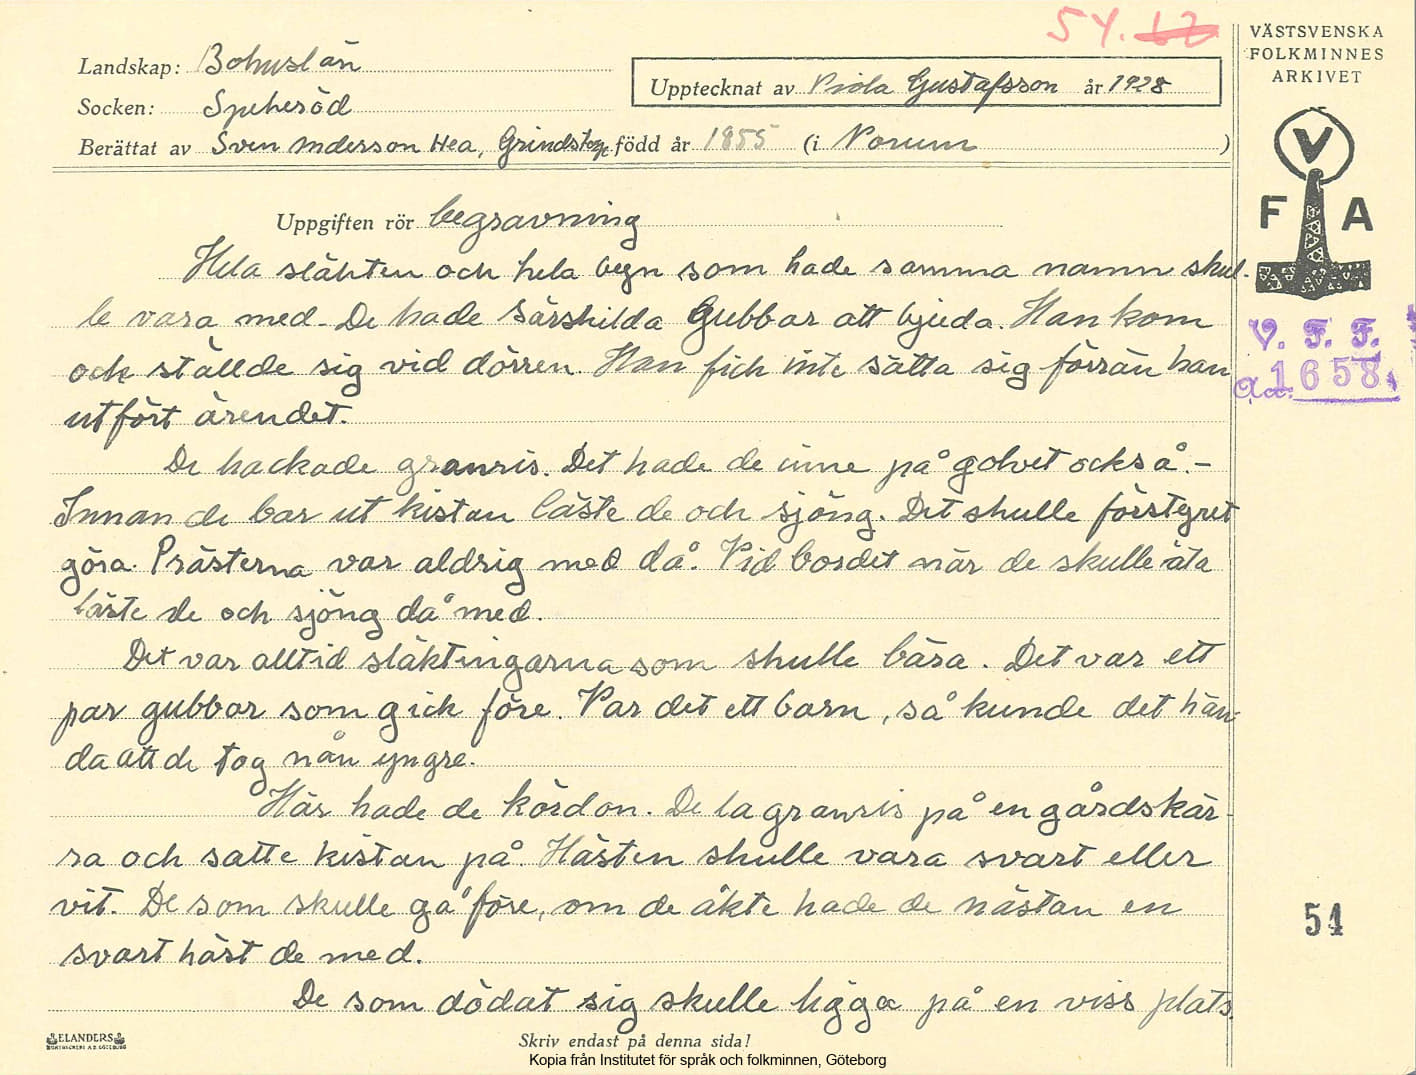 54. 62
VÄSTSVENSKA
FOLKMINNES
ARKIVET
V
F A
V. F. F.
1658
Landskap: Bohuslän
Socken: Spekeröd
Upptecknat av Viola Gustafsson år 1928
Berättat av Sven Anderson Hea, född år 1855 (i Norum)
Uppgiften rör begravning
Hela släkten och hela byn som hade samma namn skul-
le vara med. De hade särskilda Gubbar att bjuda. Han kom
och ställde sig vid dörren. Han fick inte sätta sig förrän han
utfört ärendet.
De hackade granris. Det hade de inne på golvet också. -
Innan de bar ut kistan läste de och sjöng. Det skulle förstyret
göra. Prästerna var aldrig med då. Vid bordet när de skulle äta
läste de och sjöng då med.
Det var alltid släktingarna som skulle bära. Det var ett
par gubbar som gick före. Var det ett barn, så kunde det hän-
da att de tog nån yngre.
Här hade de kördon. De la granris på en gårdskär-
ra och satte kistan på. Hästen skulle vara svart eller
vit. De som skulle gå före, om de åkte hade de nästan en
svart häst de med.
De som dödat sig skulle ligga på en viss plats.
54
ELANDERS
Skriv endast på denna sida!
Kopia från Institutet för språk och folkminnen, Göteborg